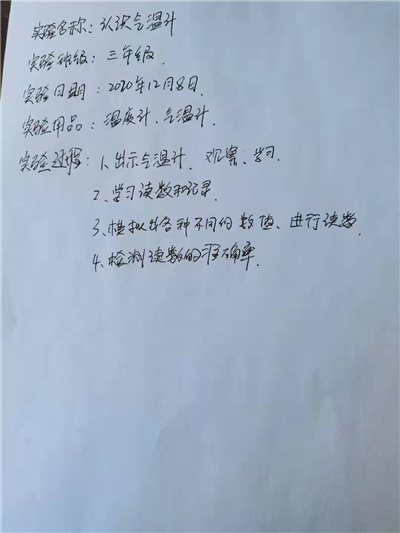 实验名称：认识气温计
实验班级：三年级.
实验日期：2020年12月8日.
实验用品：温度计、气温计.
实验过程：1、出示气温计、观察、学习.
2、学习读数和记录.
3、模拟出各种不同的数值、进行读数.
4、检测读数的准确率.